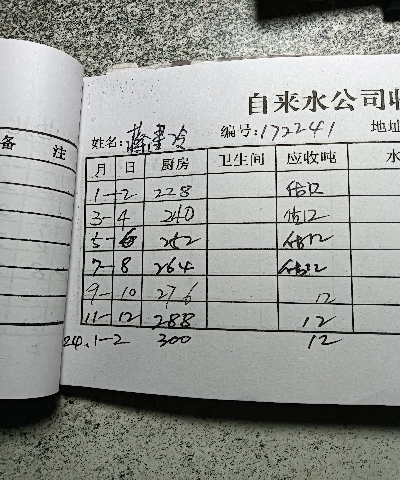 备 注
自来水公司收
姓名: 蒋墨冷 编号: 172241 地址
月 日 厨房 卫生间 应收吨 水
1-2 228 估12
3-4 240 估12
5-6 252 估12
7-8 264 估12
9-10 276 12
11-12 288 12
24.1-2 300 12